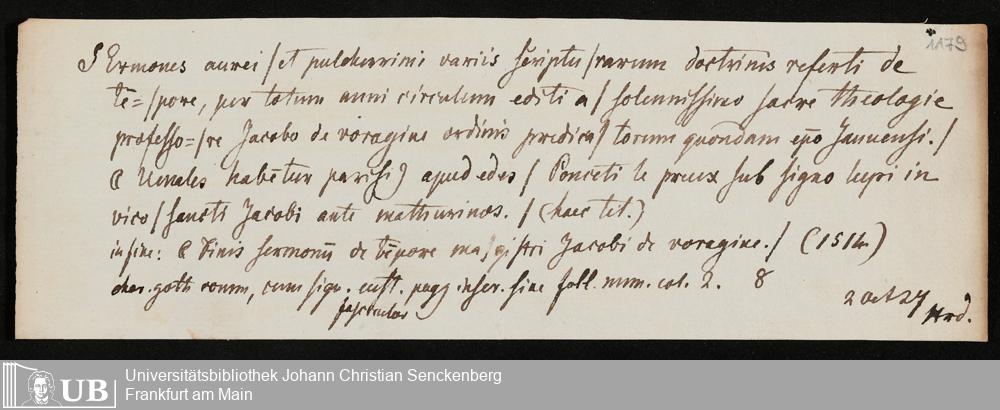 1179
SErmones aurei / et pulcherrimi variis scriptu / rarum doctrinis referti de
tē= / pore, per totum anni circulum editi a / solennissimo sacre theologie
professo= / re Jacobo de voragine ordinis predica / torum quondam ep̄o Januensi. /
C Uenales habētur parisi9 apud edes / Ponceti le preux sub signo lupi in
vico / sancti Jacobi ante mathurinos. / (haec tit.)
in fine: C Finis sermonū de tēpore ma / gistri Jacobi de voragine. / (1514)
char. goth. rom., cum sign. cust. pagg. inscr. sine foll. num. col. 2. 8
2 oct 27
Hrd.
UB
Universitätsbibliothek Johann Christian Senckenberg
Frankfurt am Main